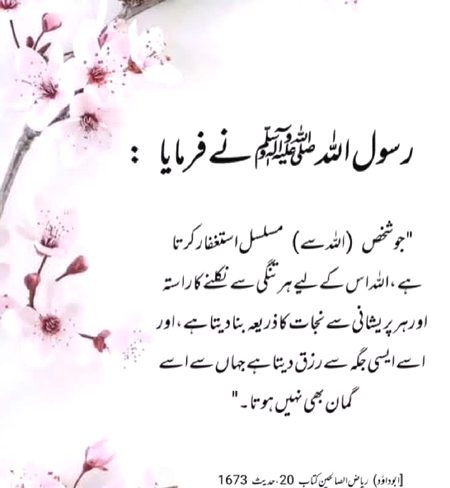 رسول اللہ ﷺ نے فرمایا :
"جو شخص (اللہ سے) مسلسل استغفار کرتا
ہے، اللہ اس کے لیے ہر تنگی سے نکلنے کا راستہ
اور ہر پریشانی سے نجات کا ذریعہ بنا دیتا ہے، اور
اسے ایسی جگہ سے رزق دیتا ہے جہاں سے اسے
گمان بھی نہیں ہوتا۔"
[ابوداؤد) ریاض الصالحین کتاب 20، حدیث 1673